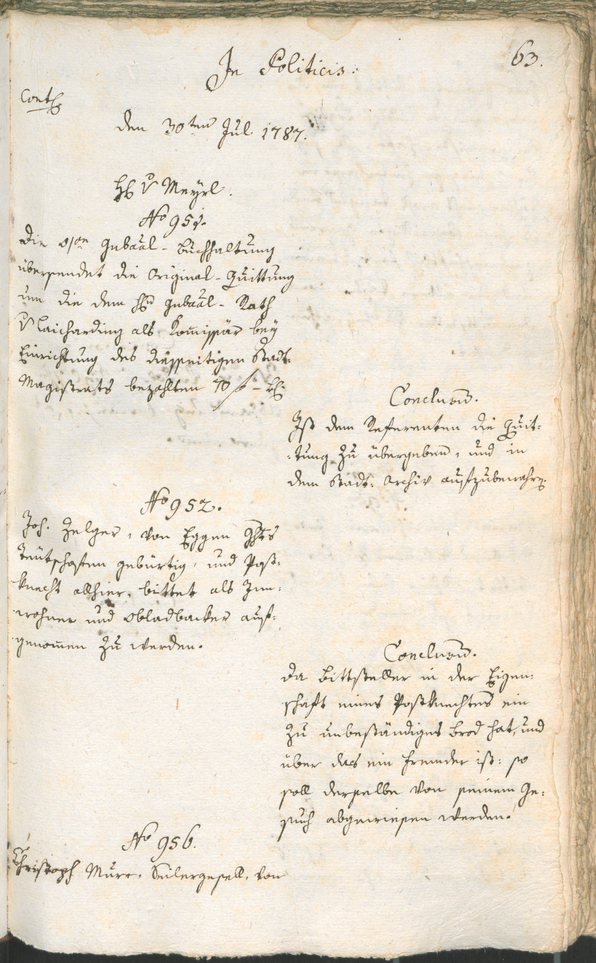 63.
In Politicis:
Conts
den 30ten Jul. 1787.
H v Meyrl.
No 951.
Die Gubaal-Buchhaltung
übersendet die Original-Quittung
um die dem Hn Gubaal-Rath
v Laicharding als Kommissär bey
Einrichtung des diesseitigen Stadt
Magistrats bezahlten 70 f - x
Conclusum.
Ist dem Referenten die Quit-
tung zu übergeben, und in
dem Stadt-Archiv aufzubewahren.
No 952.
Joh. Zelger, von Eggen Ghts
Teutschofen gebürtig, und Post-
knecht allhier, bittet als Inn-
wohner und Obladbacker auf-
genomen zu werden.
Conclusum.
Da Bittsteller in der Eigen-
schaft eines Postknechtes ein
zu unbeständiges Brod hat, und
über das ein Fremder ist: so
soll derselbe von seinem Ge-
such abgewiesen werden.
No 956.
Christoph Murr, Seilergesell, von